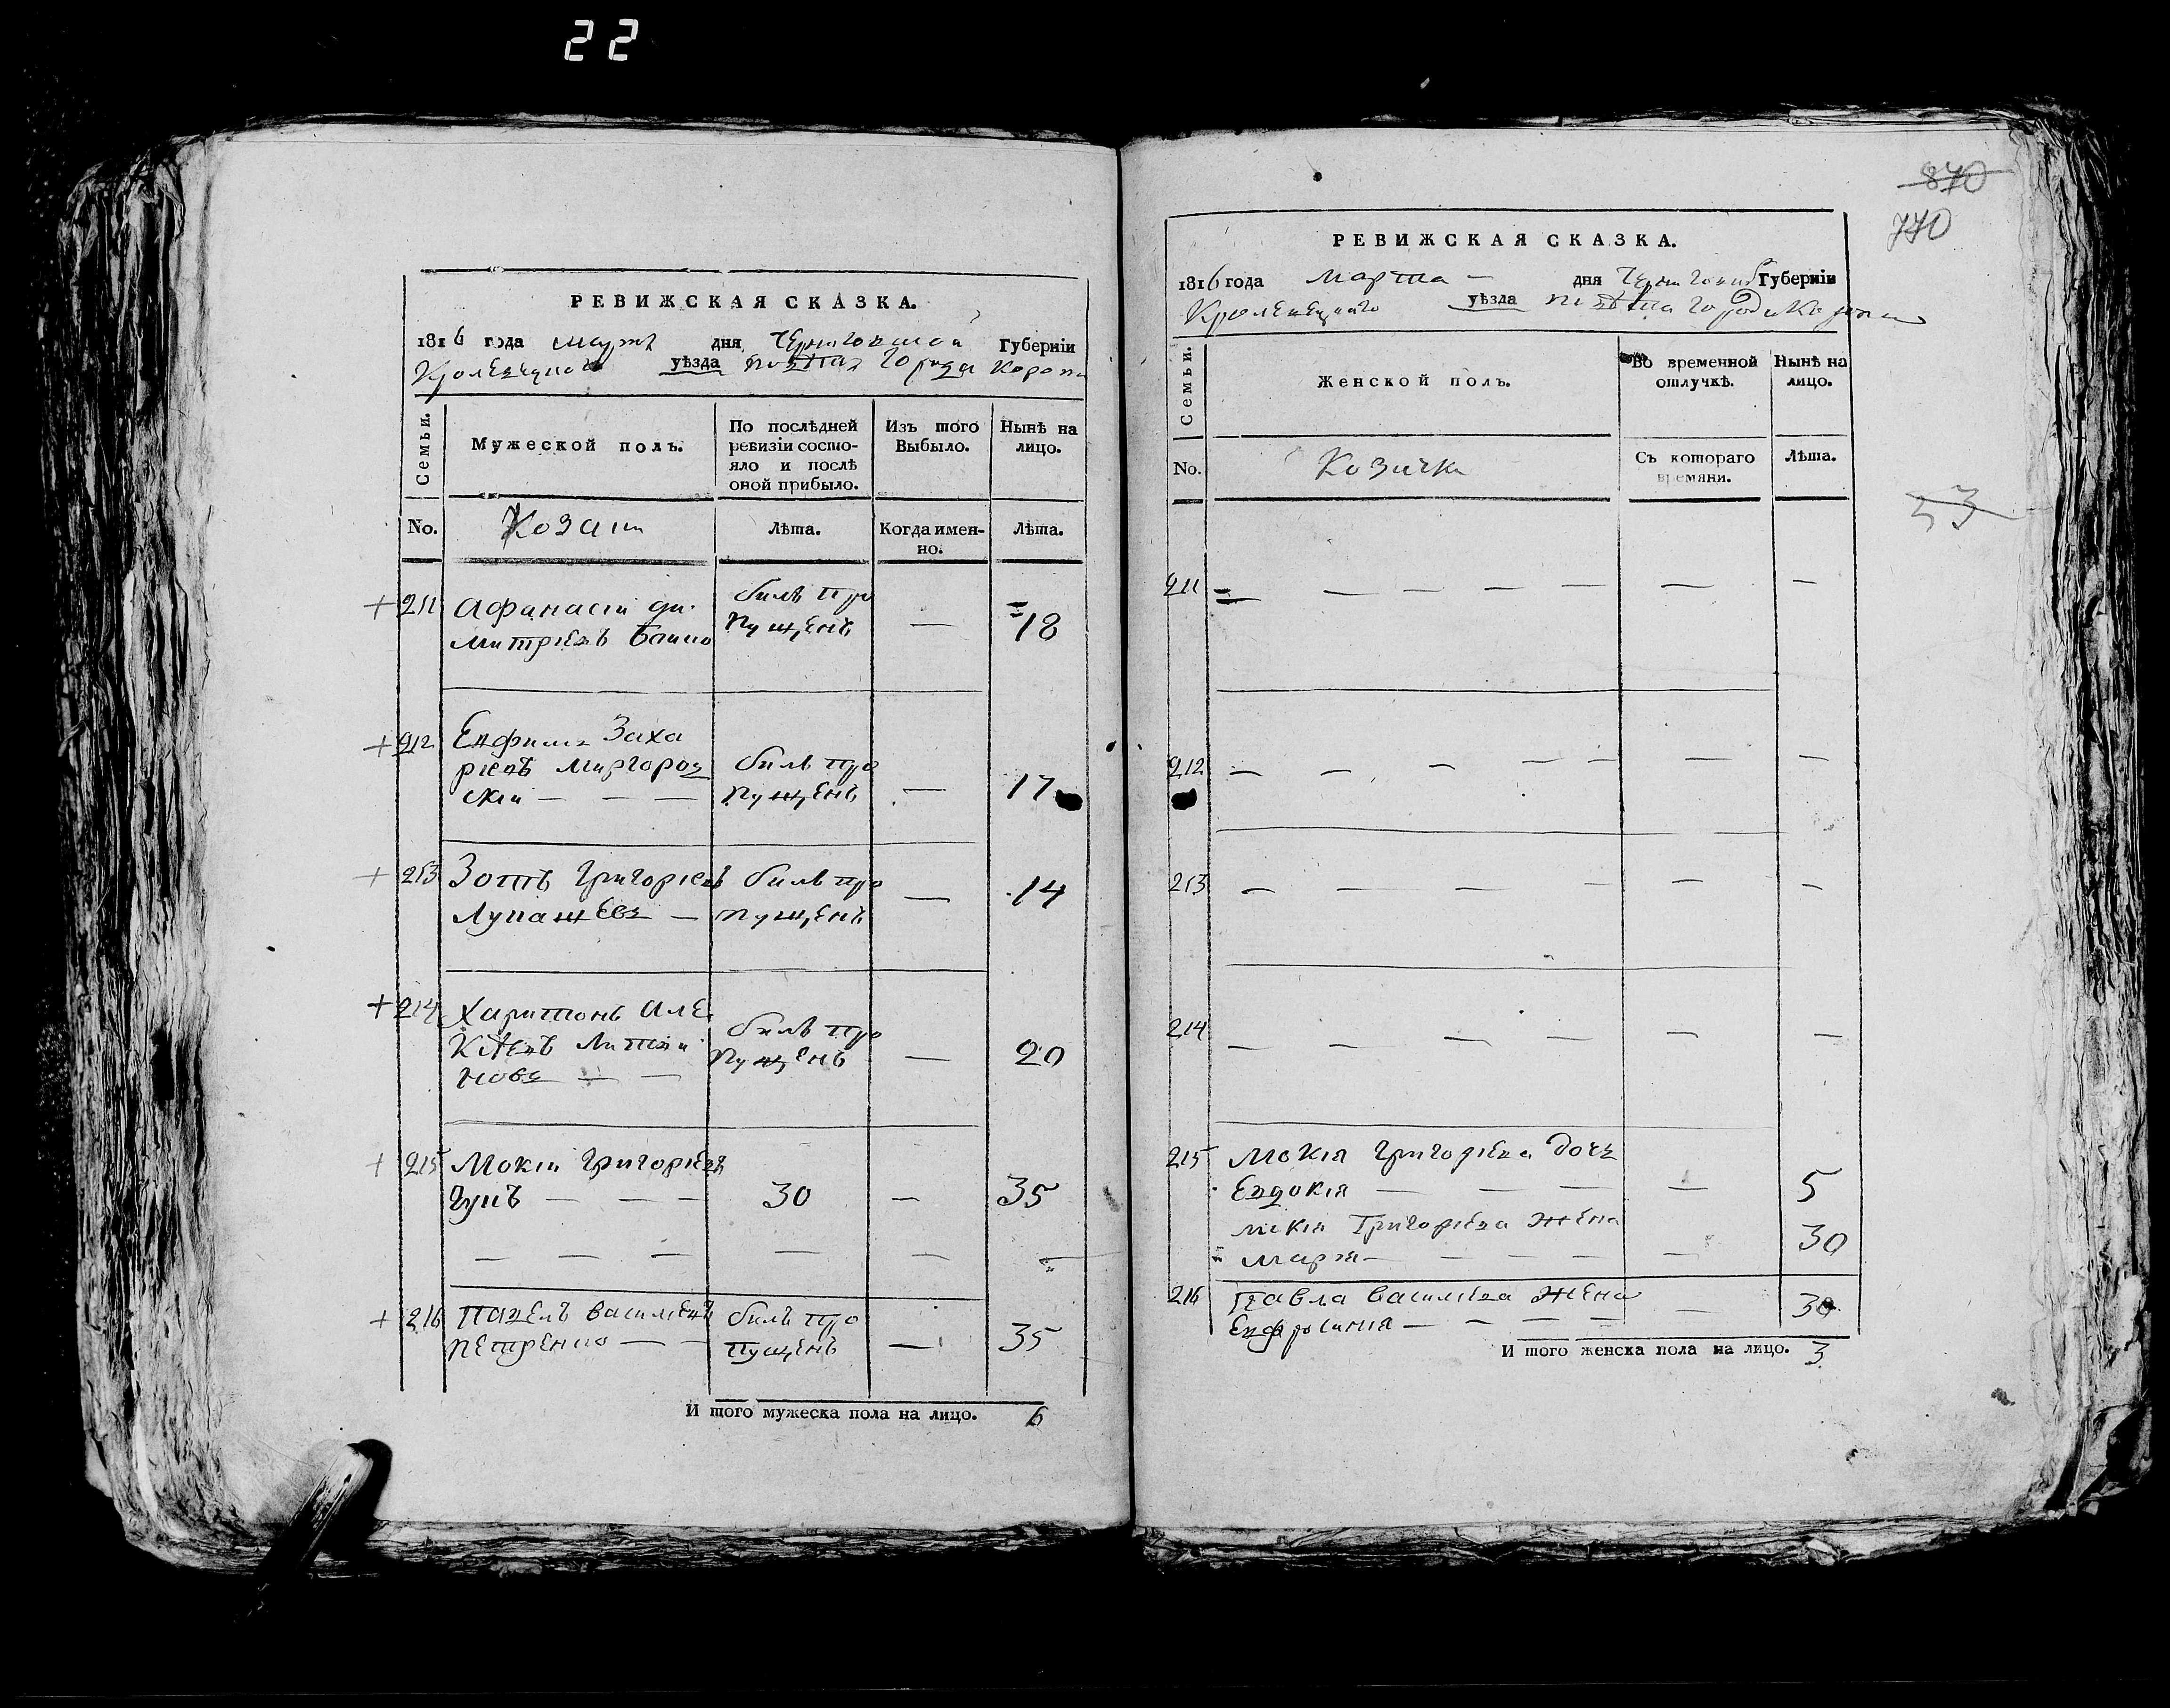 22
РЕВИЖСКАЯ СКАЗКА.
1816 года мартъ дня Черниговской Губерніи
Кролевецкого уѣзда повѣта города Коропа
Семьи.
Мужеской полъ.
По послѣдней ревизіи состояло и послѣ оной прибыло.
Изъ того Выбыло.
Нынѣ на лицо.
No.
Козаки
Лѣта.
Когда именно.
Лѣта.
+ 211 Афанасіи Ди-
митріевъ
билъ про
пущенъ — 18
+ 212 Евфимъ Заха
ріевъ Миргород
скіи — — —
билъ про
пущенъ — 17
+ 213 Зотъ Григоріевъ
билъ про
пущенъ — 14
+ 214 Харитонъ Але
новъ — —
билъ про
пущенъ — 20
+ 215 Мокіи Григоріевъ
— — — 30 — 35
— — — — — —
+ 216 Павелъ Василіевъ
Петренко — —
билъ про
пущенъ — 35
И того мужеска пола на лицо. 6
870
770
РЕВИЖСКАЯ СКАЗКА.
1816 года Марта — дня Черниговской Губерніи
Кролевецкого уѣзда повѣта города Коропа
Семьи.
Женской полъ.
Во временной отлучкѣ.
Нынѣ на лицо.
No.
Козачки
Съ котораго времяни.
Лѣта.
53
211 — — — — — — —
212 — — — — — — —
213 — — — — — —
214 — — — — — —
215 Мокія Григоріева дочь
Евдокія — — — — 5
Мокія Григоріева жена
Марія — — — — — 30
216 Павла Василіева жена
Евфросинія — — — — — 30
И того женска пола на лицо. 3